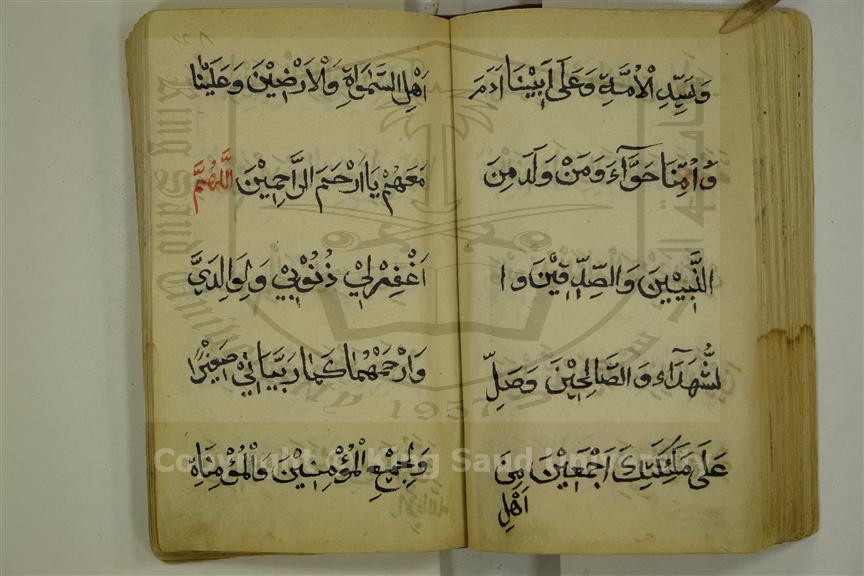 وَسَيِّدِ الْأُمَّةِ وَعَلَى اَبِيْنَا اٰدَمَ
وَاُمِّنَا حَوَّآءَ وَمَنْ وَلَدَ مِنَ
النَّبِيِّيْنَ وَالصِّدِّيْقِيْنَ وا
لشُّهَدَآءِ وَالصَّالِحِيْنَ وَصَلِّ
عَلَى مَلٰئِكَتِكَ اَجْمَعِيْنَ مِنَ
اَهْلِ
اَهْلِ السَّمٰوَاةِ وَالْاَرْضِيْنَ وَعَلَيْنَا
مَعَهُمْ يَا اَرْحَمَ الرَّاحِمِيْنَ اللّٰهُمَّ
اَغْفِرْ لِيْ ذُنُوْبِيْ وَلِوَالِدَيَّ
وَارْحَمْهُمَا كَمَا رَبَّيَانِيْ صَغِيْرًا
وَلِجَمِيْعِ الْمُؤْمِنِيْنَ وَالْمُؤْمِنَاةِ
1957
Copyright © King Saud University